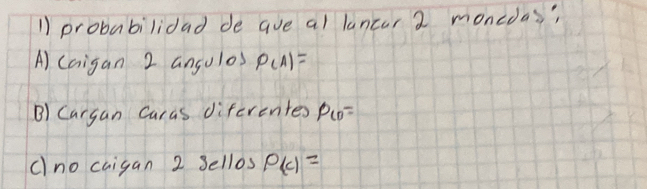 1) probabilidad de que al lanzar 2 monedas:
A) Caigan 2 angulos P(A)=
B) Caigan Caras diferentes P(B)=
C) no caigan 2 Sellos P(C)=